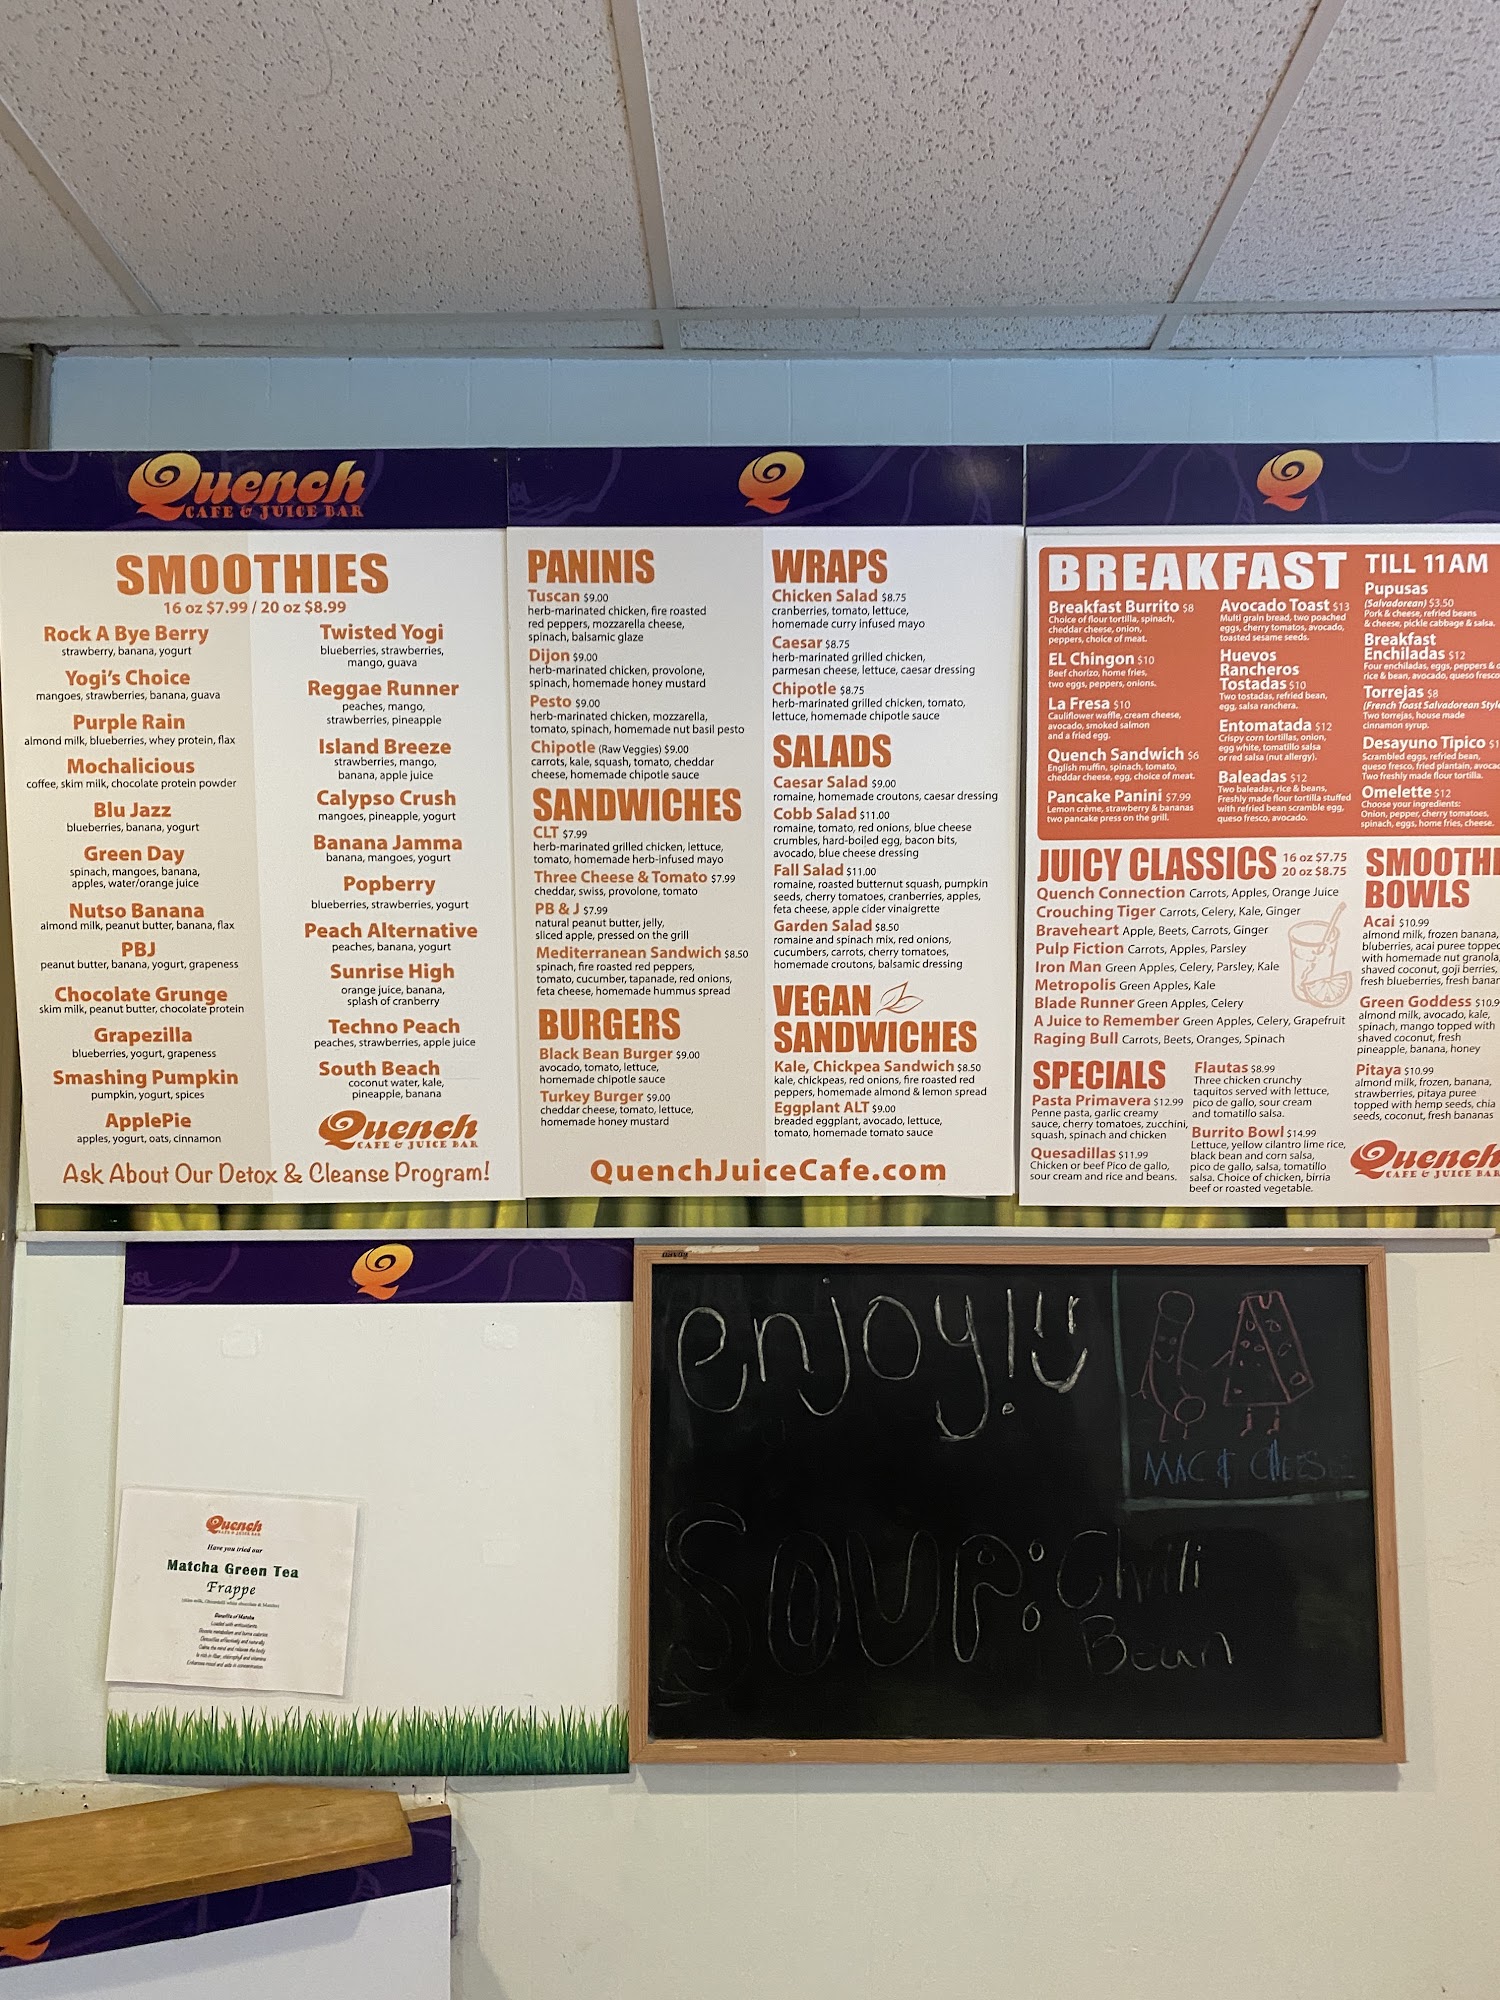 Quench
CAFE & JUICE BAR
SMOOTHIES
16 oz $7.99 / 20 oz $8.99
Rock A Bye Berry
strawberry, banana, yogurt
Yogi's Choice
mangoes, strawberries, banana, guava
Purple Rain
almond milk, blueberries, whey protein, flax
Mochalicious
coffee, skim milk, chocolate protein powder
Blu Jazz
blueberries, banana, yogurt
Green Day
spinach, mangoes, banana,
apples, water/orange juice
Nutso Banana
almond milk, peanut butter, banana, flax
PBJ
peanut butter, banana, yogurt, grapeness
Chocolate Grunge
skim milk, peanut butter, chocolate protein
Grapezilla
blueberries, yogurt, grapeness
Smashing Pumpkin
pumpkin, yogurt, spices
ApplePie
apples, yogurt, oats, cinnamon
Twisted Yogi
blueberries, strawberries,
mango, guava
Reggae Runner
peaches, mango,
strawberries, pineapple
Island Breeze
strawberries, mango,
banana, apple juice
Calypso Crush
mangoes, pineapple, yogurt
Banana Jamma
banana, mangoes, yogurt
Popberry
blueberries, strawberries, yogurt
Peach Alternative
peaches, banana, yogurt
Sunrise High
orange juice, banana,
splash of cranberry
Techno Peach
peaches, strawberries, apple juice
South Beach
coconut water, kale,
pineapple, banana
Quench
CAFE & JUICE BAR
Ask About Our Detox & Cleanse Program!
Q
PANINIS
Tuscan $9.00
herb-marinated chicken, fire roasted
red peppers, mozzarella cheese,
spinach, balsamic glaze
Dijon $9.00
herb-marinated chicken, provolone,
spinach, homemade honey mustard
Pesto $9.00
herb-marinated chicken, mozzarella,
tomato, spinach, homemade nut basil pesto
Chipotle (Raw Veggies) $9.00
carrots, kale, squash, tomato, cheddar
cheese, homemade chipotle sauce
SANDWICHES
CLT $7.99
herb-marinated grilled chicken, lettuce,
tomato, homemade herb-infused mayo
Three Cheese & Tomato $7.99
cheddar, swiss, provolone, tomato
PB & J $7.99
natural peanut butter, jelly,
sliced apple, pressed on the grill
Mediterranean Sandwich $8.50
spinach, fire roasted red peppers,
tomato, cucumber, tapanade, red onions,
feta cheese, homemade hummus spread
BURGERS
Black Bean Burger $9.00
avocado, tomato, lettuce,
homemade chipotle sauce
Turkey Burger $9.00
cheddar cheese, tomato, lettuce,
homemade honey mustard
WRAPS
Chicken Salad $8.75
cranberries, tomato, lettuce,
homemade curry infused mayo
Caesar $8.75
herb-marinated grilled chicken,
parmesan cheese, lettuce, caesar dressing
Chipotle $8.75
herb-marinated grilled chicken, tomato,
lettuce, homemade chipotle sauce
SALADS
Caesar Salad $9.00
romaine, homemade croutons, caesar dressing
Cobb Salad $11.00
romaine, tomato, red onions, blue cheese
crumbles, hard-boiled egg, bacon bits,
avocado, blue cheese dressing
Fall Salad $11.00
romaine, roasted butternut squash, pumpkin
seeds, cherry tomatoes, cranberries, apples,
feta cheese, apple cider vinaigrette
Garden Salad $8.50
romaine and spinach mix, red onions,
cucumbers, carrots, cherry tomatoes,
homemade croutons, balsamic dressing
VEGAN
SANDWICHES
Kale, Chickpea Sandwich $8.50
kale, chickpeas, red onions, fire roasted red
peppers, homemade almond & lemon spread
Eggplant ALT $9.00
breaded eggplant, avocado, lettuce,
tomato, homemade tomato sauce
QuenchJuiceCafe.com
Q
BREAKFAST TILL 11AM
Breakfast Burrito $8
Choice of flour tortilla, spinach,
cheddar cheese, onion,
peppers, choice of meat.
EL Chingon $10
Beef chorizo, home fries,
two eggs, peppers, onions.
La Fresa $10
Cauliflower waffle, cream cheese,
avocado, smoked salmon
and a fried egg.
Quench Sandwich $6
English muffin, spinach, tomato,
cheddar cheese, egg, choice of meat.
Pancake Panini $7.99
Lemon crème, strawberry & bananas
two pancake press on the grill.
Avocado Toast $13
Multi grain bread, two poached
eggs, cherry tomatos, avocado,
toasted sesame seeds.
Huevos
Rancheros
Tostadas $10
Two tostadas, refried bean,
egg, salsa ranchera.
Entomatada $12
Crispy corn tortillas, onion,
egg white, tomatillo salsa
or red salsa (nut allergy).
Baleadas $12
Two baleadas, rice & beans,
Freshly made flour tortilla stuffed
with refried bean scramble egg,
queso fresco, avocado.
Pupusas
(Salvadorean) $3.50
Pork & cheese, refried beans
& cheese, pickle cabbage & salsa.
Breakfast
Enchiladas $12
Four enchiladas, eggs, peppers &
rice & bean, avocado, queso fresco
Torrejas $8
(French Toast Salvadorean Style
Two torrejas, house made
cinnamon syrup.
Desayuno Tipico
Scrambled eggs, refried bean,
queso fresco, fried plantain,
Two freshly made flour tortilla.
Omelette $12
Choose your ingredients:
Onion, pepper, cherry tomatoes,
spinach, eggs, home fries, cheese.
JUICY CLASSICS 16 oz $7.75
20 oz $8.75
Quench Connection Carrots, Apples, Orange Juice
Crouching Tiger Carrots, Celery, Kale, Ginger
Braveheart Apple, Beets, Carrots, Ginger
Pulp Fiction Carrots, Apples, Parsley
Iron Man Green Apples, Celery, Parsley, Kale
Metropolis Green Apples, Kale
Blade Runner Green Apples, Celery
A Juice to Remember Green Apples, Celery, Grapefruit
Raging Bull Carrots, Beets, Oranges, Spinach
SPECIALS
Pasta Primavera $12.99
Penne pasta, garlic creamy
sauce, cherry tomatoes, zucchini,
squash, spinach and chicken
Quesadillas $11.99
Chicken or beef Pico de gallo,
sour cream and rice and beans.
Flautas $8.99
Three chicken crunchy
taquitos served with lettuce,
pico de gallo, sour cream
and tomatillo salsa.
Burrito Bowl $14.99
Lettuce, yellow cilantro lime rice,
black bean and corn salsa,
pico de gallo, salsa, tomatillo
salsa. Choice of chicken, birria
beef or roasted vegetable.
SMOOTHI
BOWLS
Acai $10.99
almond milk, frozen banana,
bluberries, acai puree topped
with homemade nut granola,
shaved coconut, goji berries,
fresh blueberries, fresh banan
Green Goddess $10.9
almond milk, avocado, kale,
spinach, mango topped with
shaved coconut, fresh
pineapple, banana, honey
Pitaya $10.99
almond milk, frozen, banana,
strawberries, pitaya puree
topped with hemp seeds, chia
seeds, coconut, fresh bananas
Quench
CAFE & JUICE BAR
Q
Quench
CAFE & JUICE BAR
Have you tried our
Matcha Green Tea
Frappe
Benefits of Matcha
Loaded with antioxidants
enjoy!
MAC & CHEESE
SOUP: Chili
Bean